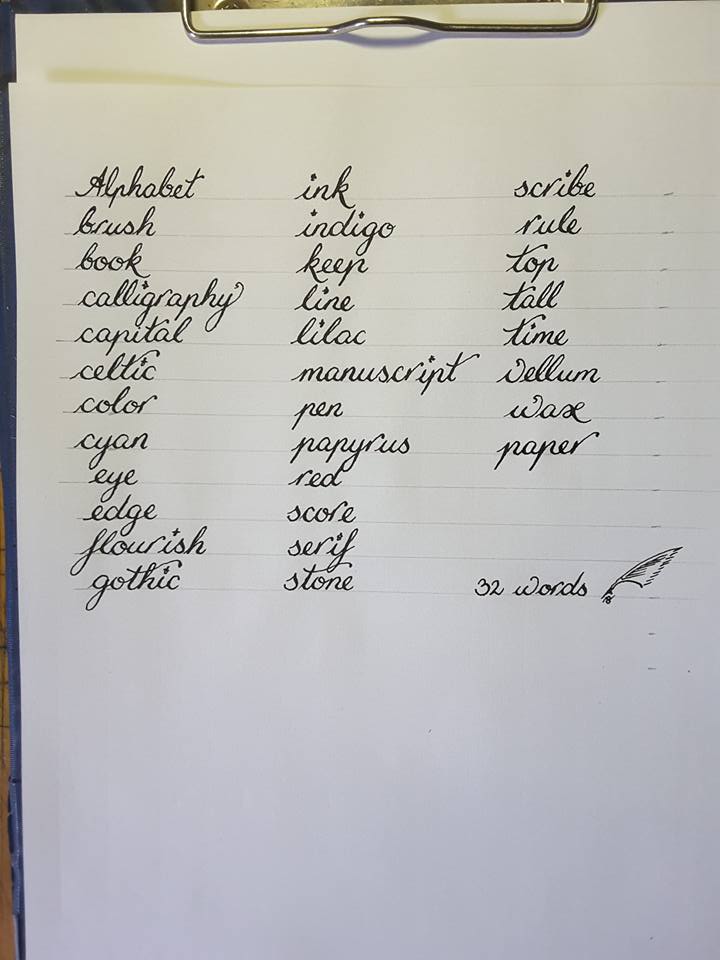 Alphabet
brush
book
calligraphy
capital
celtic
color
cyan
eye
edge
flourish
gothic
ink
indigo
keep
line
lilac
manuscript
pen
papyrus
red
score
serif
stone
scribe
rule
top
tall
time
vellum
wax
paper
32 words